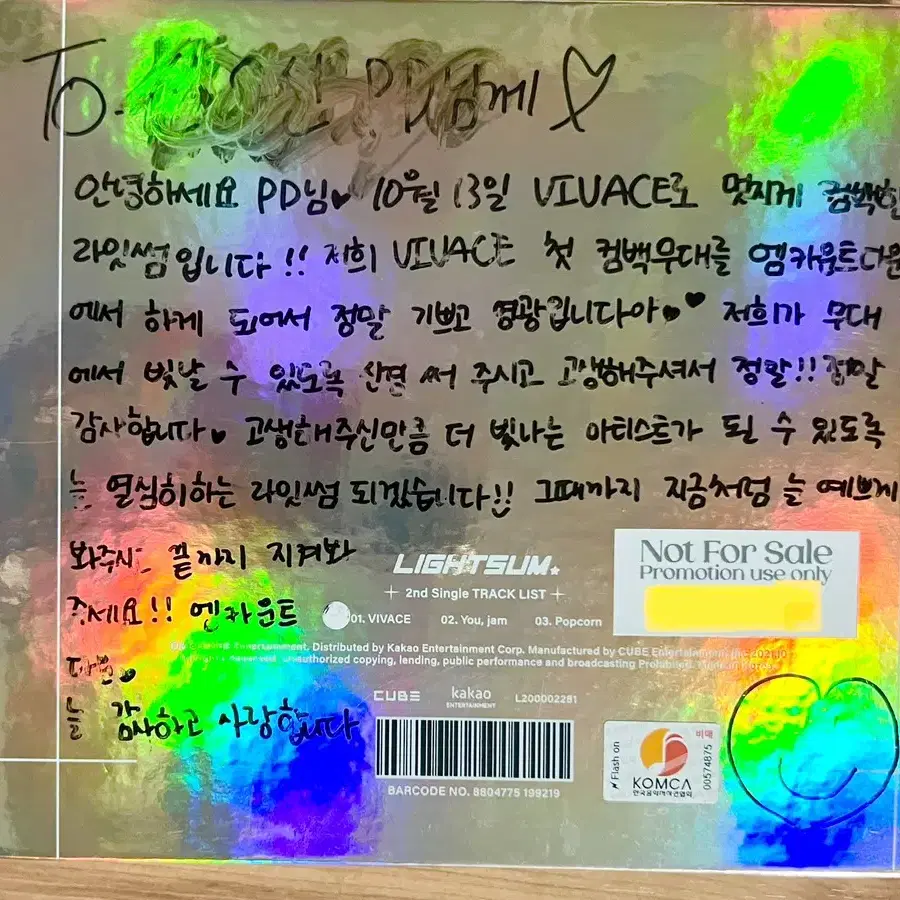 To. PD님께
안녕하세요 PD님 10월 13일 VIVACE로 멋지게 컴백한
라잇썸입니다!! 저희 VIVACE 첫 컴백무대를 엠카운트다운
에서 하게 되어서 정말 기쁘고 영광입니다아 저희가 무대
에서 빛날 수 있도록 신경 써 주시고 고생해주셔서 정말!! 정말
감사합니다 고생해주신만큼 더 빛나는 아티스트가 될 수 있도록
늘 열심히하는 라잇썸 되겠습니다!! 그때까지 지금처럼 늘 예쁘게
봐주시고 끝까지 지켜봐
주세요!! 엠카운트
다운
늘 감사하고 사랑합니다
LIGHTSUM
2nd Single TRACK LIST
01. VIVACE 02. You, jam 03. Popcorn
Entertainment, Distributed by Kakao Entertainment Corp. Manufactured by CUBE Entertainment Inc. 2021.10
unauthorized copying, lending, public performance and broadcasting Prohibited.
Not For Sale
Promotion use only
CUBE kakao ENTERTAINMENT L200002281
BARCODE NO. 8804775 199219
Flash on
KOMCA
한국음악저작권협회
비매
00574875